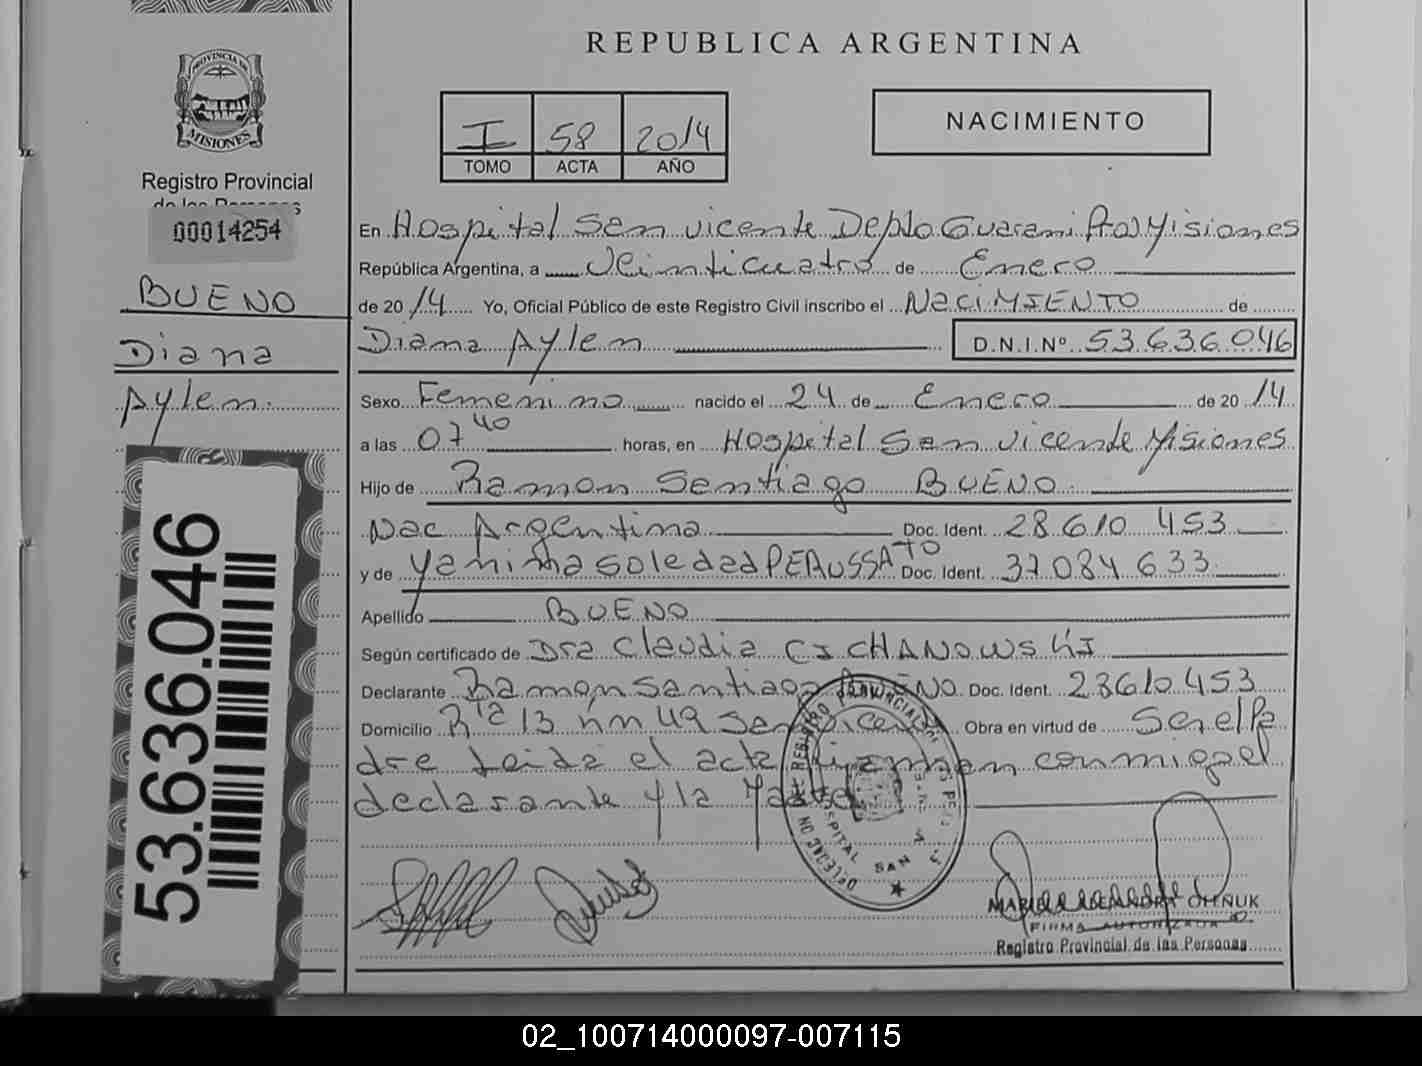 REPUBLICA ARGENTINA
PROVINCIA DE
MISIONES
I 58 2014
TOMO ACTA AÑO
NACIMIENTO
Registro Provincial
de las Personas
00014254
BUENO
Diana
Aylen
53.636.046
En Hospital San vicente Depto Guarani Prov Misiones
República Argentina, a Veinticuatro de Enero
de 2014 Yo, Oficial Público de este Registro Civil inscribo el NaCiMIENTO de
Diana Aylen D.N.I.Nº 53.636.046
Sexo Femenino nacido el 24 de Enero de 2014
a las 07 40 horas, en Hospital San vicente Misiones
Hijo de Ramon Santiago BUENO
Nac Argentina Doc. Ident. 28.610.453
y de Yanina Soledad PERUSSATO Doc. Ident. 37084633
Apellido BUENO
Según certificado de Dra Claudia CICHANOWSKI
Declarante Ramón Santiago BUENO Doc. Ident. 28610453
Domicilio Rta 13 km 49 San Vicente Obra en virtud de Ser el Pa
dre Leida el acta firman conmigo el
declarante y la Madre
REGISTRO PROVINCIAL
HOSPITAL SAN
MARIELA ALEJANDRA OHÑUK
FIRMA AUTORIZADA
Registro Provincial de las Personas
02_100714000097-007115